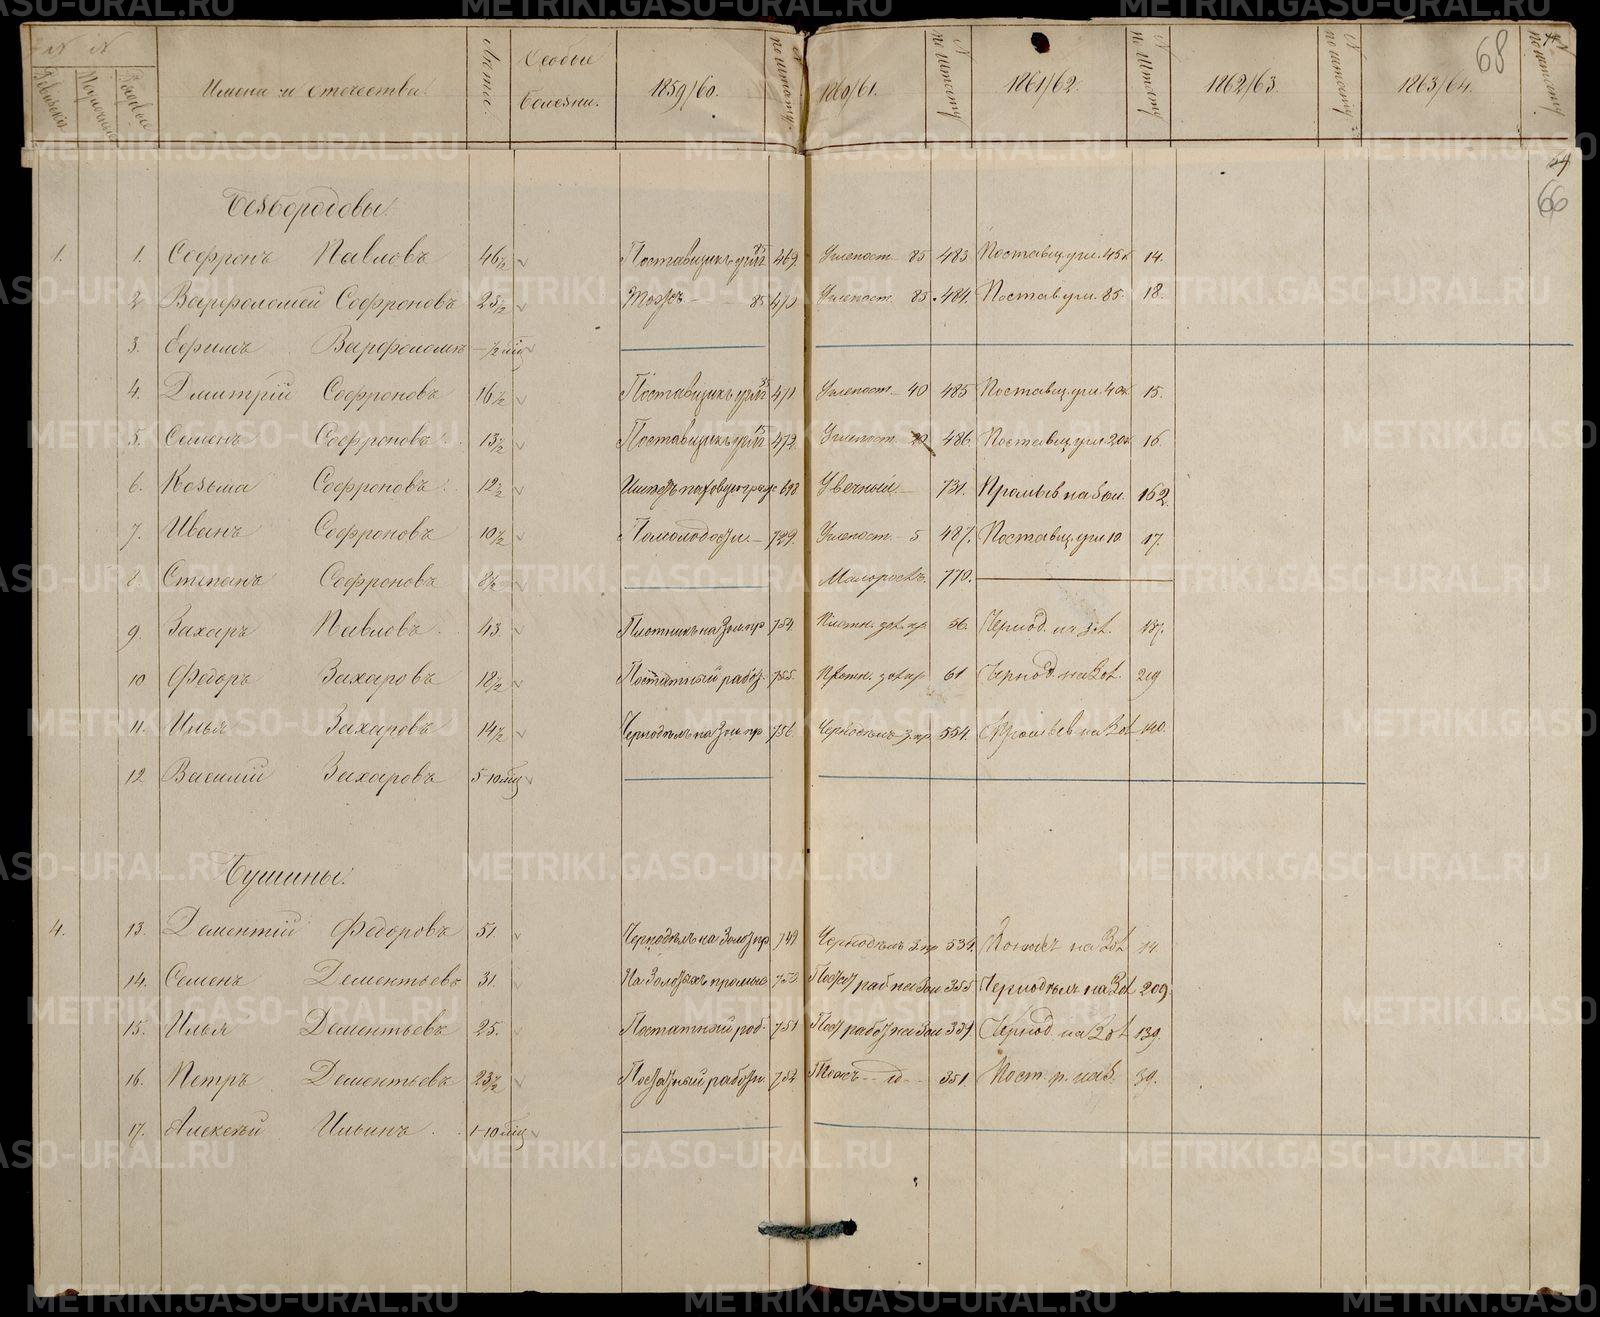 № №
Ревизские
Рядовые
Имена и отчества.
Лета.
Особые болезни.
1859/60.
№ по штату.
1860/61.
№ по штату
1861/62.
№ по штату
1862/63.
№ по штату
1863/64.
№ по штату
68
66
Безбородовы.
1. 1. Софронъ Павловъ 46½ Поставщикъ угля 469. Углепост. 85 483 Поставщ. угля. 45к 14.
2 Варфоломей Софроновъ 25½ Тоже 85 470 Углепост. 85. 484. Постав угля. 85. 18.
3. Ефимъ Варфоломѣ — ½ мѣс
4. Дмитрій Софроновъ 16½ Поставщикъ угля 471 Углепост. 40 485 Поставщ. угля. 40к 15.
5. Семенъ Софроновъ. 13½ Поставщикъ угля 472. Углепост. 486 Поставщ. угля 20к 16
6. Козьма Софроновъ. 12½ 698 Увечный 731. Промыв на зол. 162
7. Иванъ Софроновъ 10½ 729. Углепост. 5 487. Поставщ. угля 10 17.
8. Степанъ Софроновъ 8½ Малоростъ. 770.
9. Захаръ Павловъ. 43. Плотникъ на Зол. пр 754. Плотн. зол. пр. 56. Чернод. на зол. 187.
10 Федоръ Захаровъ 18½ Постатный работ. 755. Плотн. зол. пр 61 Чернод. на Зол 219
11. Илья Захаровъ 14½ Чернодѣлъ на Зол. пр 756. Чернодѣлъ З. пр 554. Промыв на Зол 140.
12 Василій Захаровъ 5-10 мѣс
Бушины.
4. 13. Дементій Федоровъ 51. Чернодѣлъ на Золот. пр 749. Чернодѣлъ З. пр 534. Конюхъ на Зол. 14.
14. Семенъ Дементьевъ 31. На Золотыхъ промыс 750 Пост раб на Зол. 355 Чернодѣлъ на Зол 209.
15. Илья Дементьевъ 25. Постатный раб. 751 Пост работ на Зол 339. Чернод. на Зол 139.
16. Петръ Дементьевъ 23½ Постатный работн. 752 Тоже 351. Пост. р. на З. 39.
17. Алексѣй Ильинъ. 1-10 мѣс
METRIKI.GASO-URAL.RU